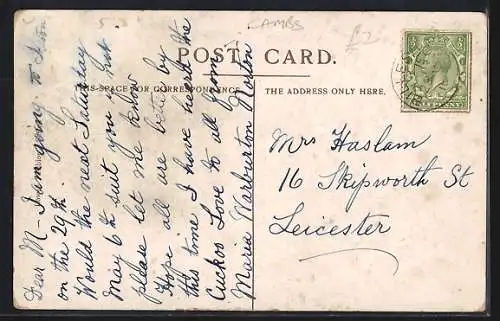 CAMBS
POST CARD.
THIS SPACE FOR CORRESPONDENCE
THE ADDRESS ONLY HERE.
Dear M - I am going to
on the 29th.
Would the next Saturday
May 6th suit you but
please let me know
Hope all are better by
this time I have heard the
Cuckoo Love to all from
Maria Warburton
Mrs Haslam
16 Skipworth St
Leicester